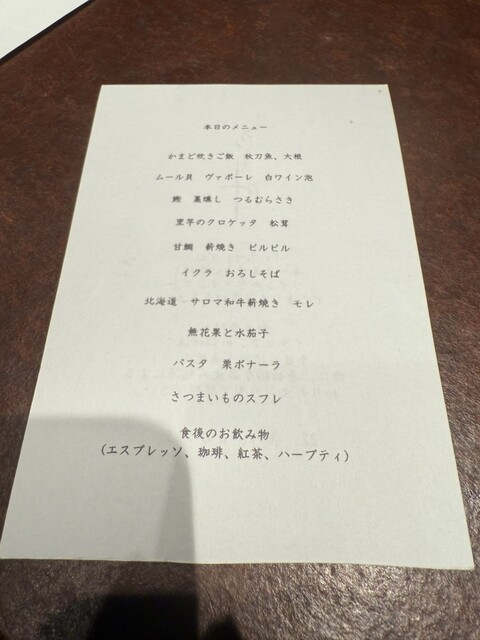 本日のメニュー
かまど炊きご飯　秋刀魚、大根
ムール貝　ヴァポーレ　白ワイン泡
鰹　藁燻し　つるむらさき
里芋のクロケッタ　松茸
甘鯛　薪焼き　ピルピル
イクラ　おろしそば
北海道　サロマ和牛薪焼き　モレ
無花果と水茄子
パスタ　栗ボナーラ
さつまいものスフレ
食後のお飲み物
（エスプレッソ、珈琲、紅茶、ハーブティ）